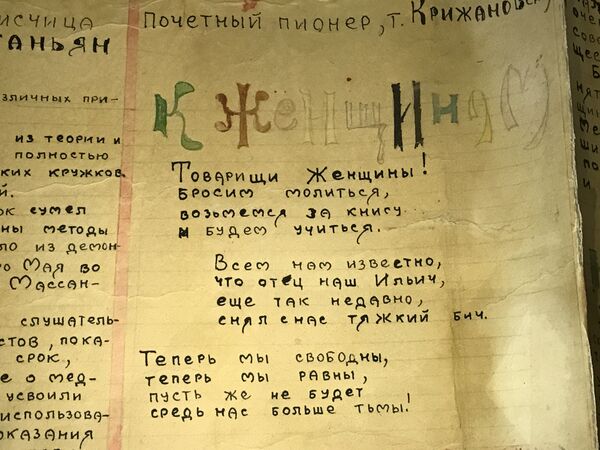 исчица
таньян
зличных при-
из теории и
полностью
ких кружков
й.
ок сумел
ны методы
ло из демон-
го Мая во
Массан-
слушатель-
стов, пока-
срок,
е о мед-
усвоили
использова-
оказания
Почетный пионер, т. Крижановск
К ЖЕНЩИНАМ
Товарищи женщины!
бросим молиться,
возьмемся за книгу
и будем учиться.
Всем нам известно,
что отец наш Ильич,
еще так недавно,
снял с нас тяжкий бич.
Теперь мы свободны,
теперь мы равны,
пусть же не будет
средь нас больше тьмы!